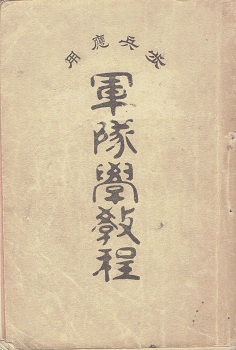 步兵應用
軍隊學教程